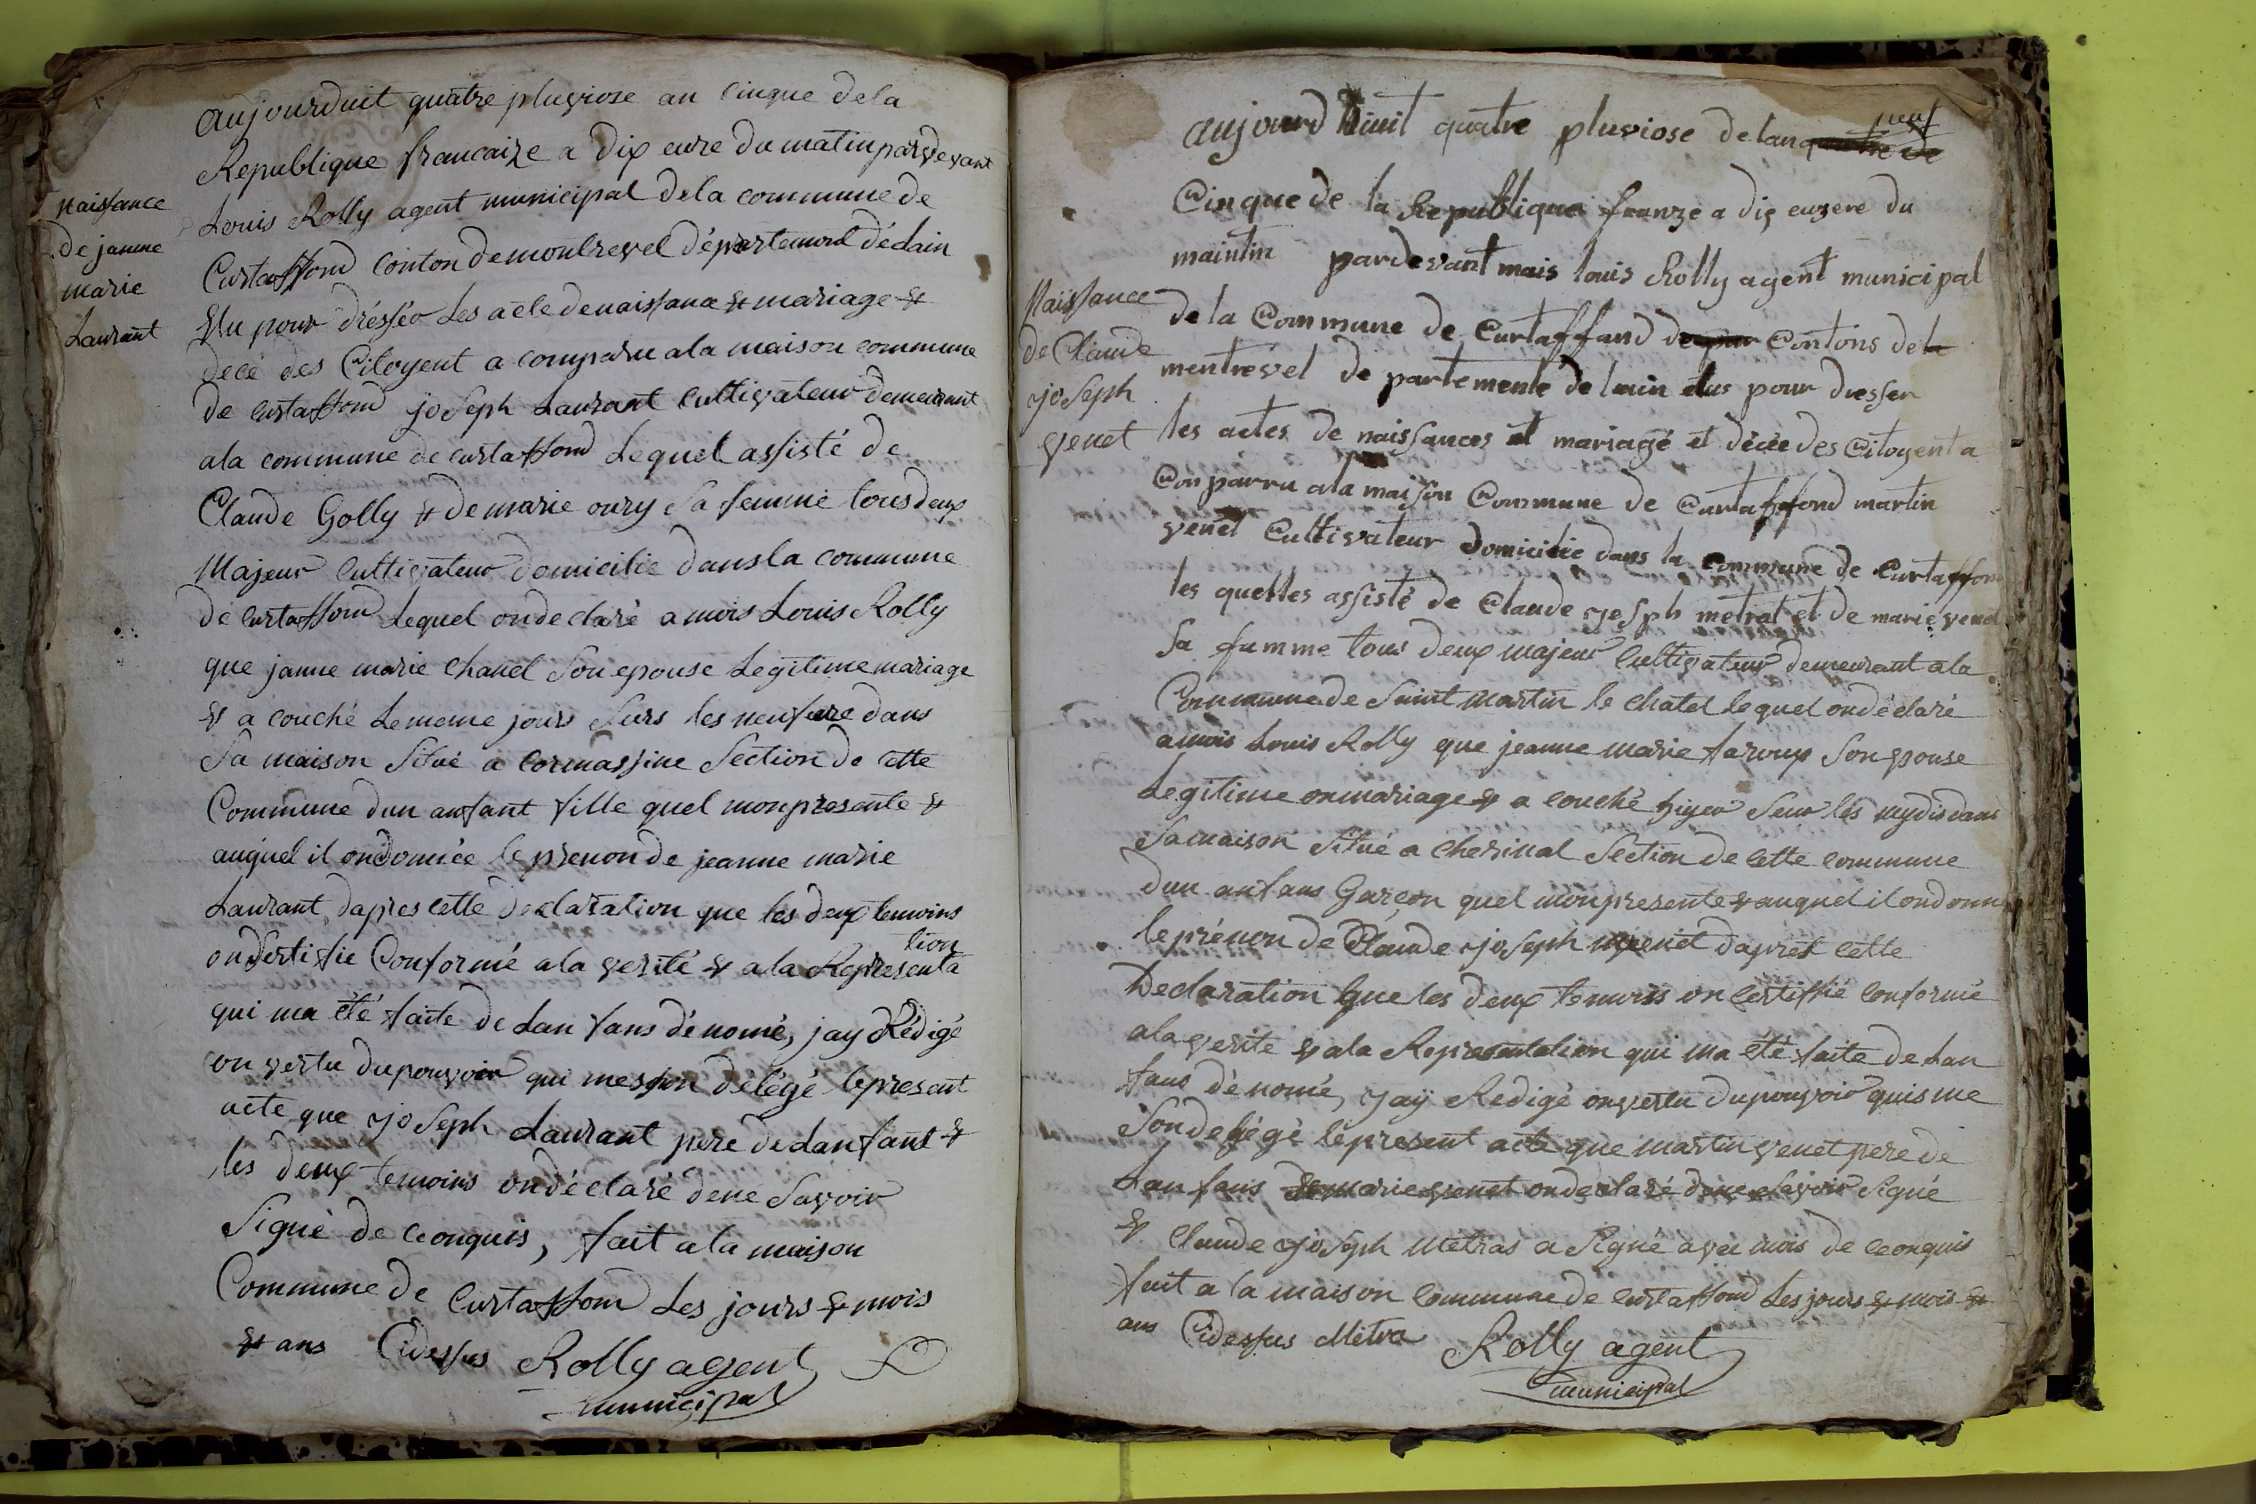 naissance
de janne
marie
Laurant
aujourduit quatre pluviose an cinque dela
Republique francaize a dix eure du matin pardevant
Louis Rolly agent municipal dela commune de
Curtaffond conton demontrevel département délain
Elu pour dréssér Les acte denaissance & mariage &
decé des Citoyent a comparu ala maison commune
de curtaffond joseph Laurant cultivateur demeurant
ala commune de curtaffond Lequel assisté de
Claude Golly & de marie oury sa femme tous deux
Majeur cultivateur domicilie dans la commune
de curtaffond Lequel ondeclaré a mois Louis Rolly
que janne marie chanel son epouse Legitime mariage
& a couché Lememe jours surs les neufure dans
sa maison situé a cormassine section de cette
Commune dun anfant fille quel monpresente &
auquel il ondonnée le prenon de jeanne marie
Laurant, dapres cette declaration que les deux temoins
oncertifie Conformé ala verité & ala Representa
tion
qui ma été faite de Lan fans dénomé, jay Rédigé
on vertu dupouvoir qui messon délégé lepresent
acte que joseph Laurant pere de Lanfant &
les deux temoins ondéclaré dene savoir
signé de ceonquis, fait ala maison
Commune de curtaffond Les jours & mois
& ans Cidessus Rolly agent
municipal
Naissance
de Claude
joseph
venet
aujourd huit quatre pluviose delan quatre de
neuf
Cinque de la Republique franze a dix euzere du
maintin pardevant mais louis Rolly agent municipal
de la Commune de Curtaffand depar Contons dela
mentrevel de partemente de lain elus pour dresser
les actes de naissances et mariagé et décée des Citoyent a
Conparru ala maison Commune de Curtaffond martin
venet Cultivateur domicilie dans la Commune de Curtaffon
les quelles assisté de Claude joseph metrat et de marie venet
sa fumme tous deux majeur cultivateur demeurant ala
Commune de Saint martin le chatel lequel ondéclaré
amois Louis Rolly que jeanne marie faroux son epouse
Legitime onmariage & a couché hiyer seur les mydis dans
samaison situé a cherinal section de cette commune
dun anfans Garçon quel monpresente & auquel il ondonn
leprénon de Claude joseph venet daprès cette
Declaration que les deux temoins on certiffié conformé
ala verité & ala Representation qui ma été faite de Lan
fans dénomé, jay Redigé onvertu dupouvoir quisme
sondelégé lepresent acte que martin venet pere de
Lan fans & marie venet ondeclaré dene savoir signé
& Claude joseph Metras a signé avec mois de ceonquis
fait a la maison commune de curtaffond Les jours & mois &
ans Cidessus Metra Rolly agent
municipal